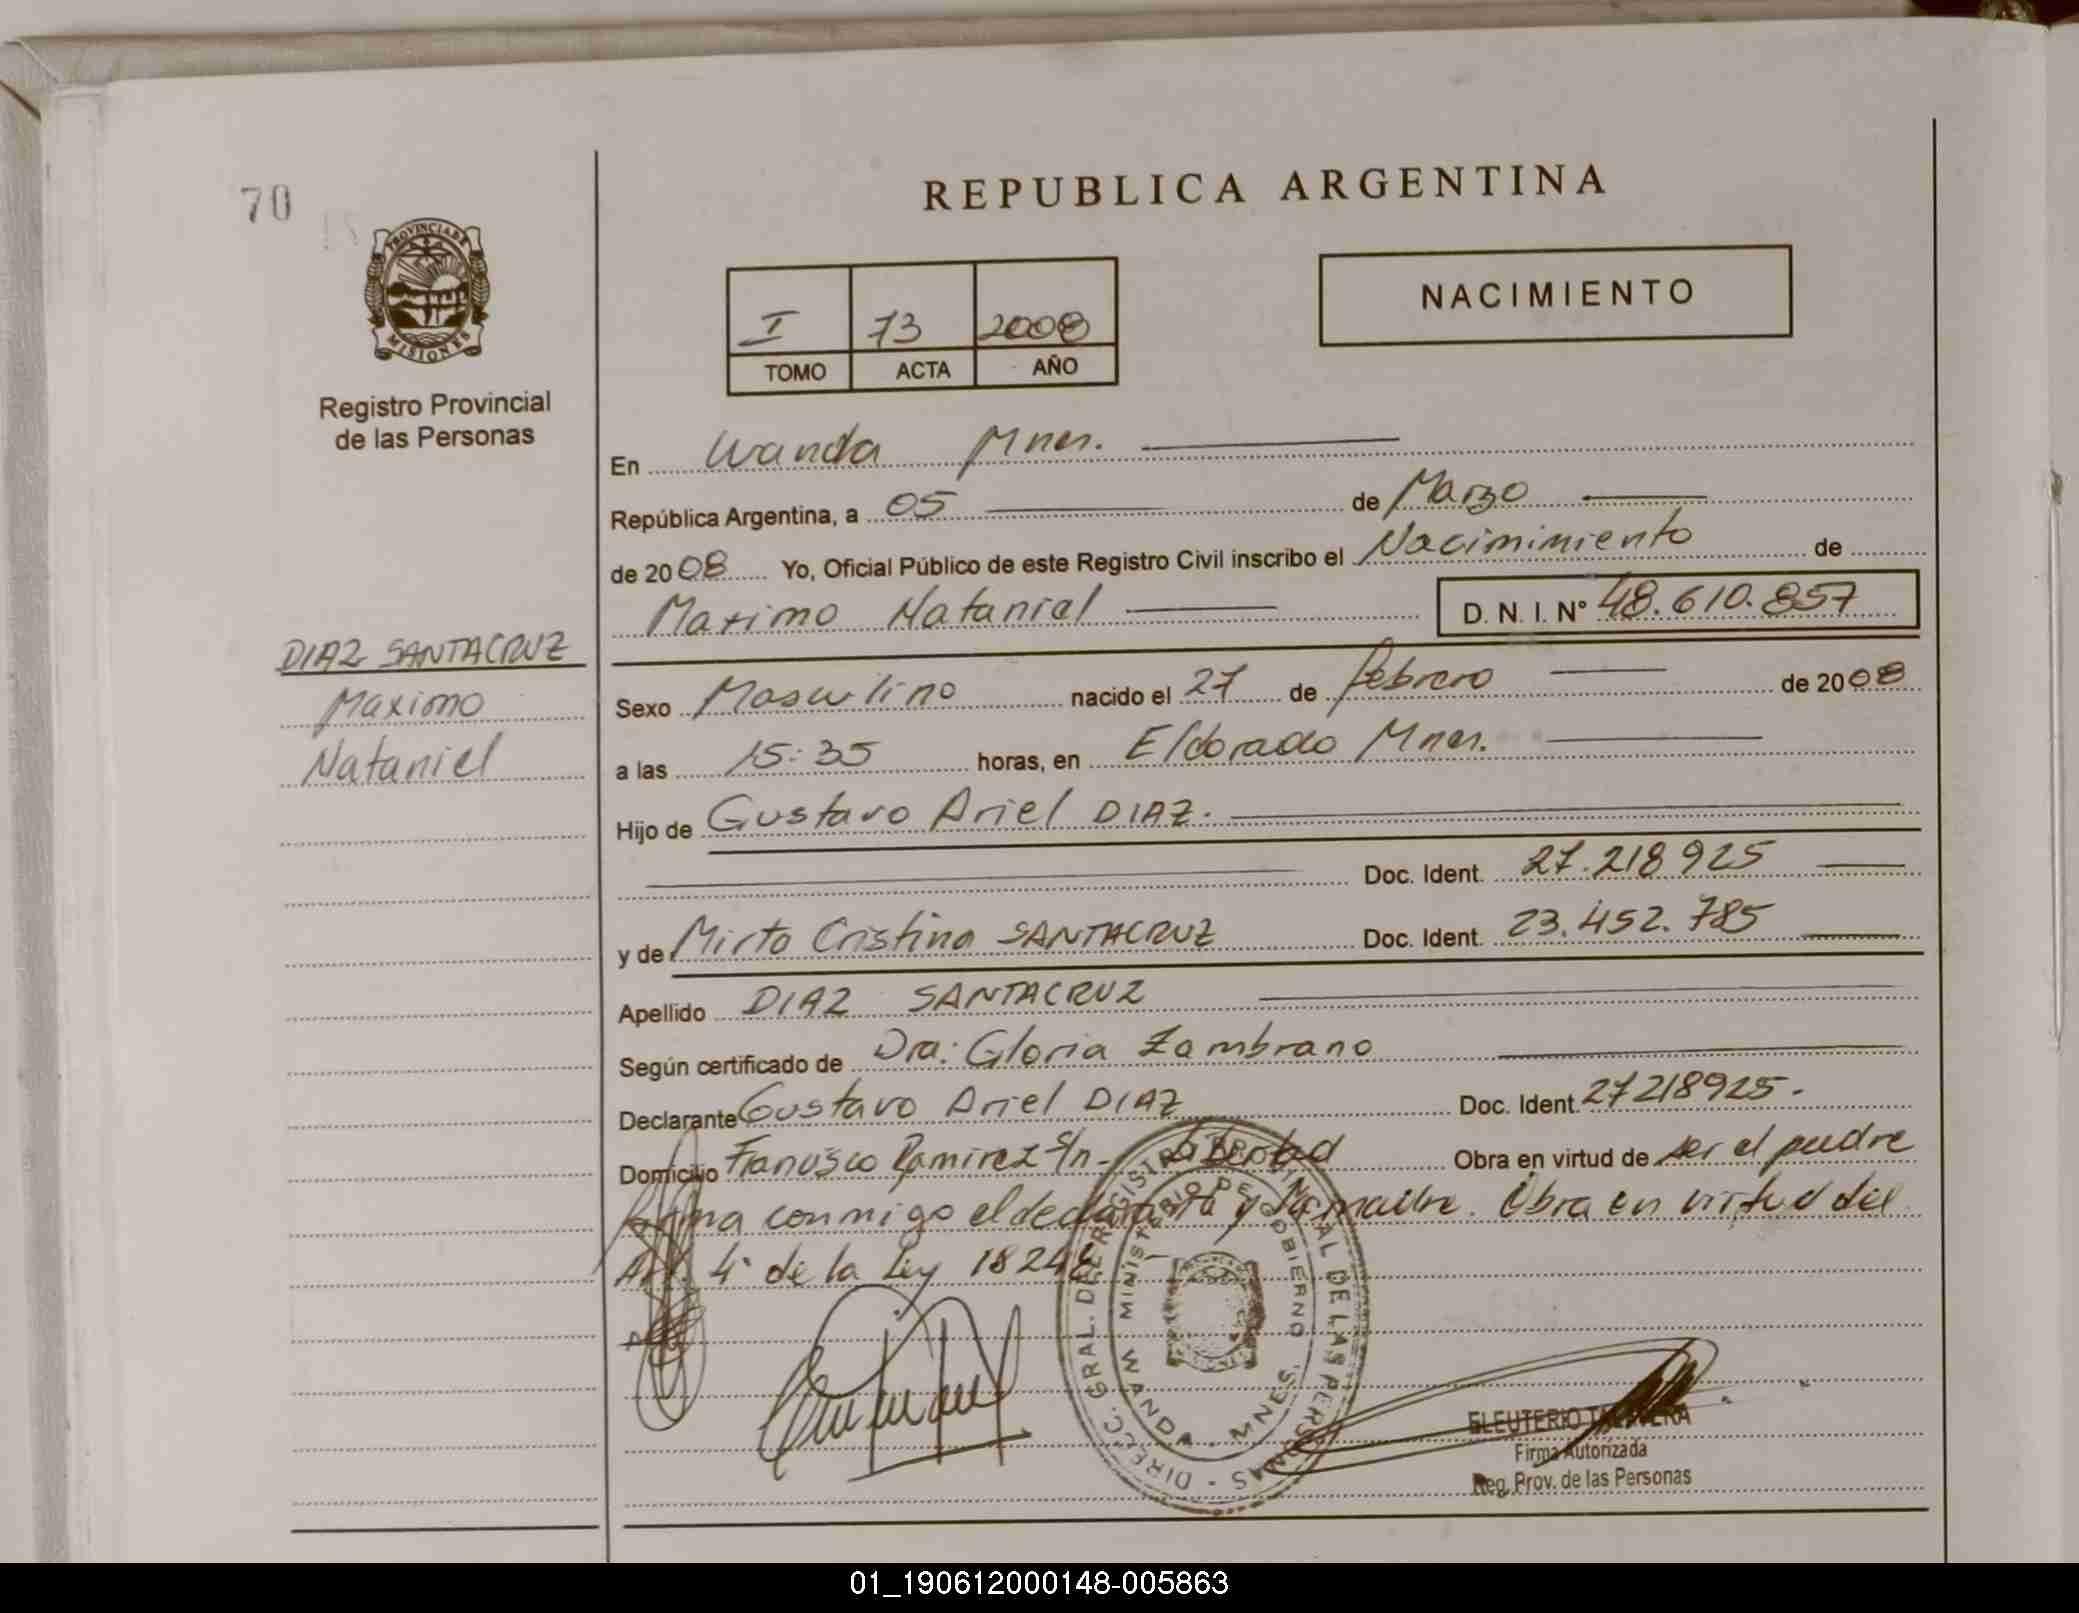 70
PROVINCIA DE
MISIONES
Registro Provincial
de las Personas
REPUBLICA ARGENTINA
I 73 2008
TOMO ACTA AÑO
NACIMIENTO
En Wanda Mnes.
República Argentina, a 05 de Marzo
de 2008 Yo, Oficial Público de este Registro Civil inscribo el Nacimimiento de
Maximo Nataniel D. N. I. Nº 48.610.857
DIAZ SANTACRUZ
Maximo
Nataniel
Sexo Masculino nacido el 27 de febrero de 2008
a las 15:35 horas, en Eldorado Mnes.
Hijo de Gustavo Ariel DIAZ.
Doc. Ident. 27.218925
y de Mirta Cristina SANTACRUZ Doc. Ident. 23.452.785
Apellido DIAZ SANTACRUZ
Según certificado de Dra: Gloria Zambrano
Declarante Gustavo Ariel DIAZ Doc. Ident. 27218925.
Domicilio Francisco Ramirez S/n - Libertad Obra en virtud de ser el padre
firma conmigo el declarante y la madre. Obra en virtud del
Art. 4º de la Ley 18248
DIRECC. GRAL. DEL REGISTRO PROVINCIAL DE LAS PERSONAS
MINISTERIO DE GOBIERNO
WANDA - MNES.
ELEUTERIO TALAVERA
Firma Autorizada
Reg. Prov. de las Personas
01_190612000148-005863